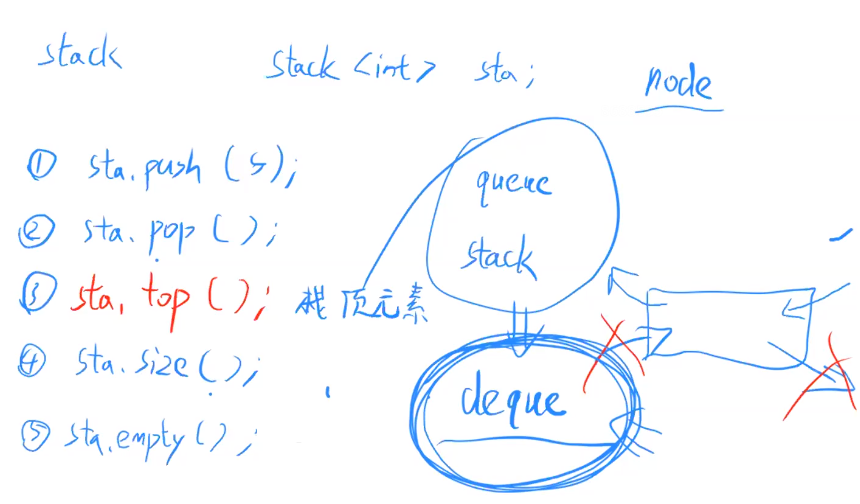 stack
stack <int> sta;
node
① sta.push (5);
② sta.pop ();
③ sta, top (); 栈顶元素
④ sta.size ();
⑤ sta.empty ();
queue
stack
deque